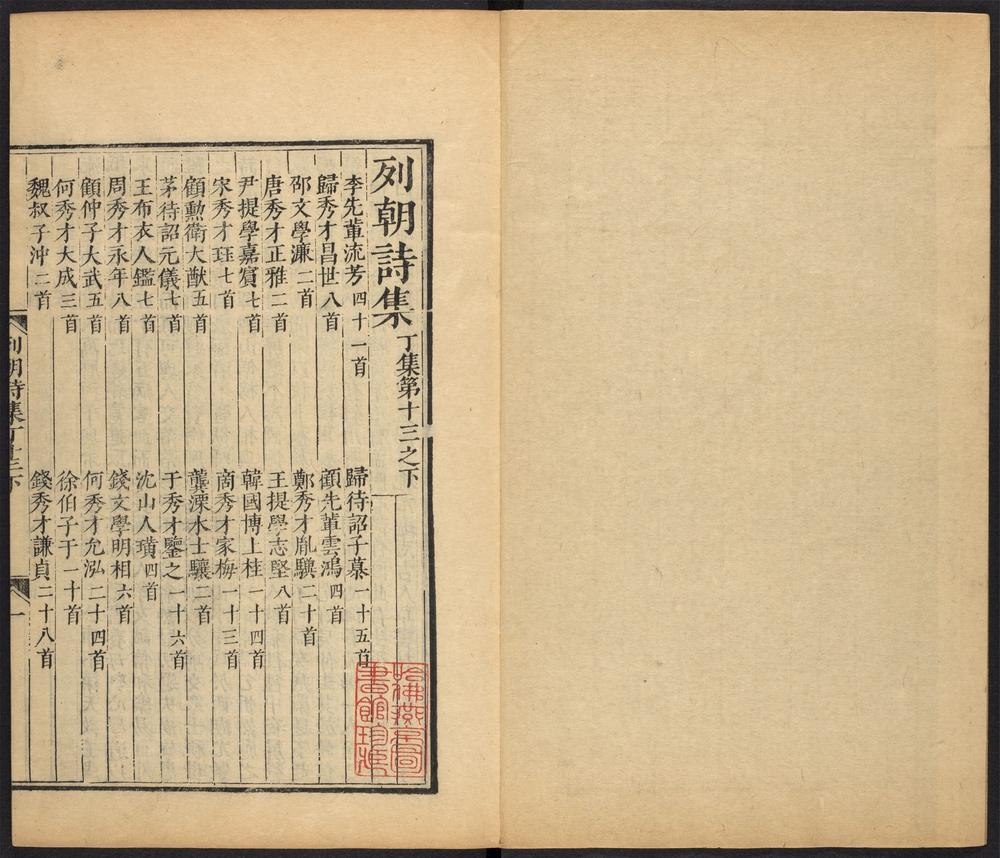 列朝詩集丁集第十三之下
李先輩流芳四十一首
歸待詔子慕一十五首
歸秀才昌世八首
顧先輩雲鴻四首
邵文學濂二首
鄭秀才胤驥二十首
唐秀才正雅二首
王提學志堅八首
尹提學嘉賓七首
韓國博上桂一十四首
宋秀才珏七首
商秀才家梅一十三首
顧勳衛大猷五首
龔溧水士驤二首
茅待詔元儀七首
于秀才鑒之一十六首
王布衣人鑑七首
沈山人璜四首
周秀才永年八首
錢文學明相六首
顧仲子大武五首
何秀才允泓二十四首
何秀才大成三首
徐伯子于一十首
魏叔子沖二首
錢秀才謙貞二十八首
列朝詩集丁十三下
一
哈佛燕京圖
書館珍藏